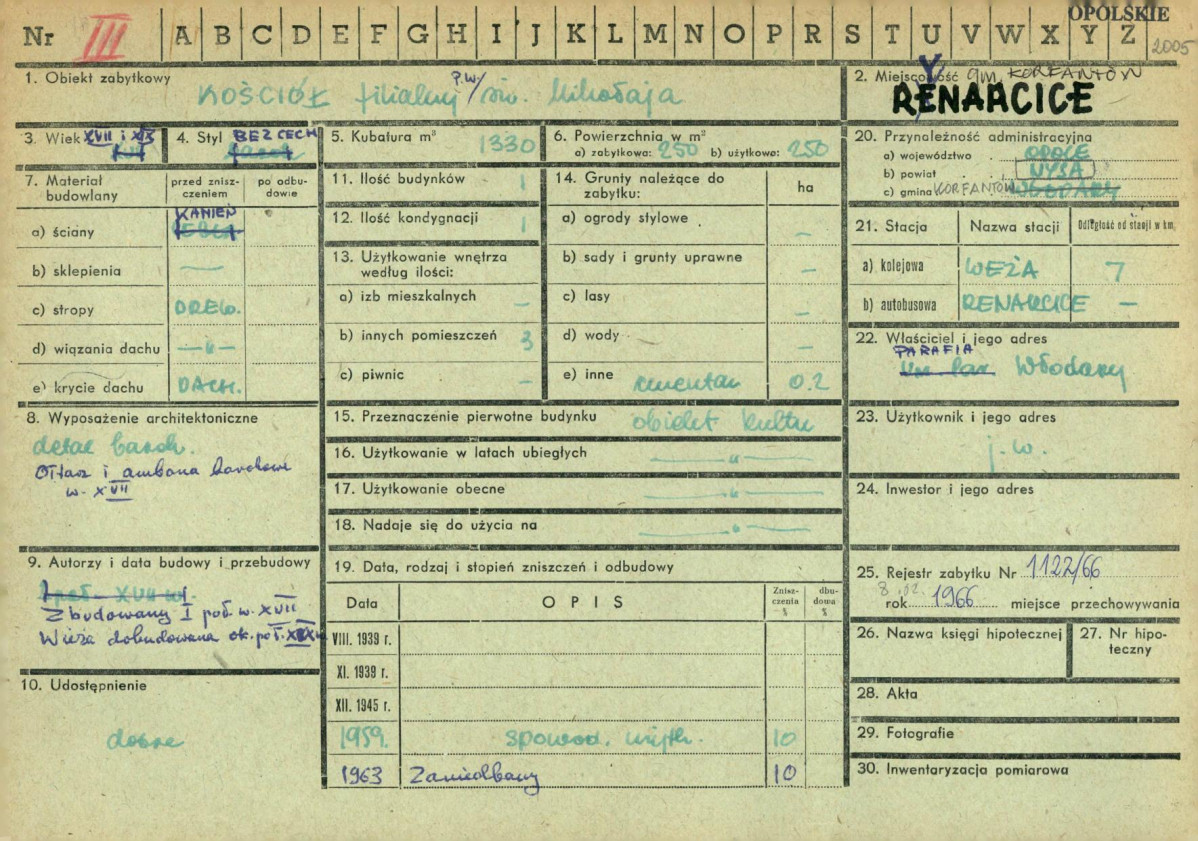 OPOLSKIE
Nr III A B C D E F G H I J K L M N O P R S T U V W X Y Z 2005
1. Obiekt zabytkowy
KOŚCIÓŁ filialny p.w/ św. Mikołaja
2. Miejscowość gm. KORFANTÓW
RYNARCICE
3. Wiek XVII i XIX
4. Styl BEZ CECH
barok
5. Kubatura m³ 1330
6. Powierzchnia w m²
a) zabytkowa: 250 b) użytkowa: 250
7. Materiał budowlany
przed zniszczeniem
po odbudowie
a) ściany KAMIEŃ
CEGŁA
b) sklepienia —
c) stropy DREW.
d) wiązania dachu —„—
e) krycie dachu DACH.
8. Wyposażenie architektoniczne
detal barok.
Ołtarz i ambona barokowe
w. XVII
9. Autorzy i data budowy i przebudowy
I poł. XVII w.
Zbudowany I poł. w. XVII
Wieża dobudowana ok. poł. XIX w
10. Udostępnienie
dobre
11. Ilość budynków 1
12. Ilość kondygnacji 1
13. Użytkowanie wnętrza
według ilości:
a) izb mieszkalnych —
b) innych pomieszczeń 3
c) piwnic —
14. Grunty należące do
zabytku: ha
a) ogrody stylowe —
b) sady i grunty uprawne —
c) lasy —
d) wody —
e) inne cmentarz 0.2
15. Przeznaczenie pierwotne budynku obiekt kultu
16. Użytkowanie w latach ubiegłych —„—
17. Użytkowanie obecne —„—
18. Nadaje się do użycia na —„—
19. Data, rodzaj i stopień zniszczeń i odbudowy
Data OPIS Zniszczenia % dbudowa %
VIII. 1939 r.
XI. 1939 r.
XII. 1945 r.
1959. spowod. użytk. 10
1963 Zaniedbany 10
20. Przynależność administracyjna
a) województwo OPOLE
b) powiat NYSA
c) gmina KORFANTÓW WŁODARY
21. Stacja Nazwa stacji Odległość od stacji w km.
a) kolejowa WĘŻA 7
b) autobusowa RENARCICE —
22. Właściciel i jego adres
PARAFIA
Włodary
23. Użytkownik i jego adres
j. w.
24. Inwestor i jego adres
25. Rejestr zabytku Nr 1122/66
8.02.
rok 1966 miejsce przechowywania
26. Nazwa księgi hipotecznej
27. Nr hipoteczny
28. Akta
29. Fotografie
30. Inwentaryzacja pomiarowa